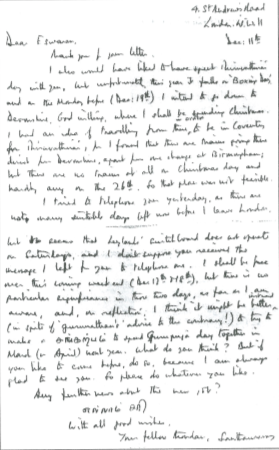 4 St Andrews Road
London. W
Dec: 11th
Dear Eswaran,
Thank you for your letter.
I also would have liked to have spent Thiruvathirai
day with you, but unfortunately this year it falls on Boxing Day
and on the Monday before (Dec: 19th) I intend to go down to
Devonshire, God willing, where I shall be spending Christmas.
I had an idea of travelling from there, to be in Coventry
for Thiruvathirai, as I found that there are trains from there
direct from Devonshire, apart from one change at Birmingham;
but there are no trains at all on Christmas day and
hardly any on the 26th. So that plan was not feasible.
I tried to telephone you yesterday, as there are
not many suitable days left now before I leave London.
but it seems that switchboard does not operate
on Saturdays, and I don't suppose you received the
message I left for you to telephone me. I shall be free
over this coming weekend (Dec: 17th & 18th), but there is no
particular significance in those two days, as far as I am
aware, and, on reflection, I think it might be better
(in spite of advice to the contrary!) to try to
make a to spend day together in
March (or April) next year. What do you think? But if
you like to come before, do so, because I am always
glad to see you. So please do whatever you like.
Any further news about the new job?
With all good wishes.
Your fellow